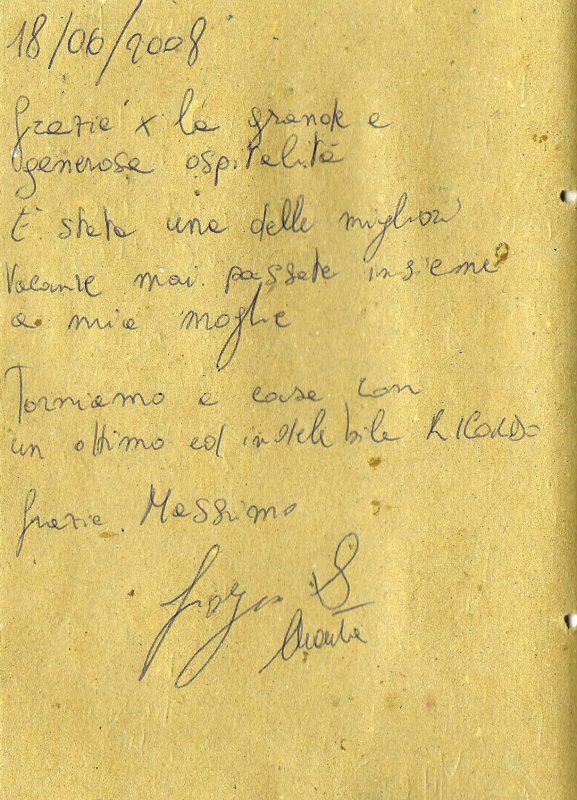 18/06/2008
Grazie x la grande e
generosa ospitalità
È stata una delle migliori
vacanze mai passate insieme
a mia moglie
Torniamo a casa con
un ottimo ed indelebile RICORDO
Grazie Massimo